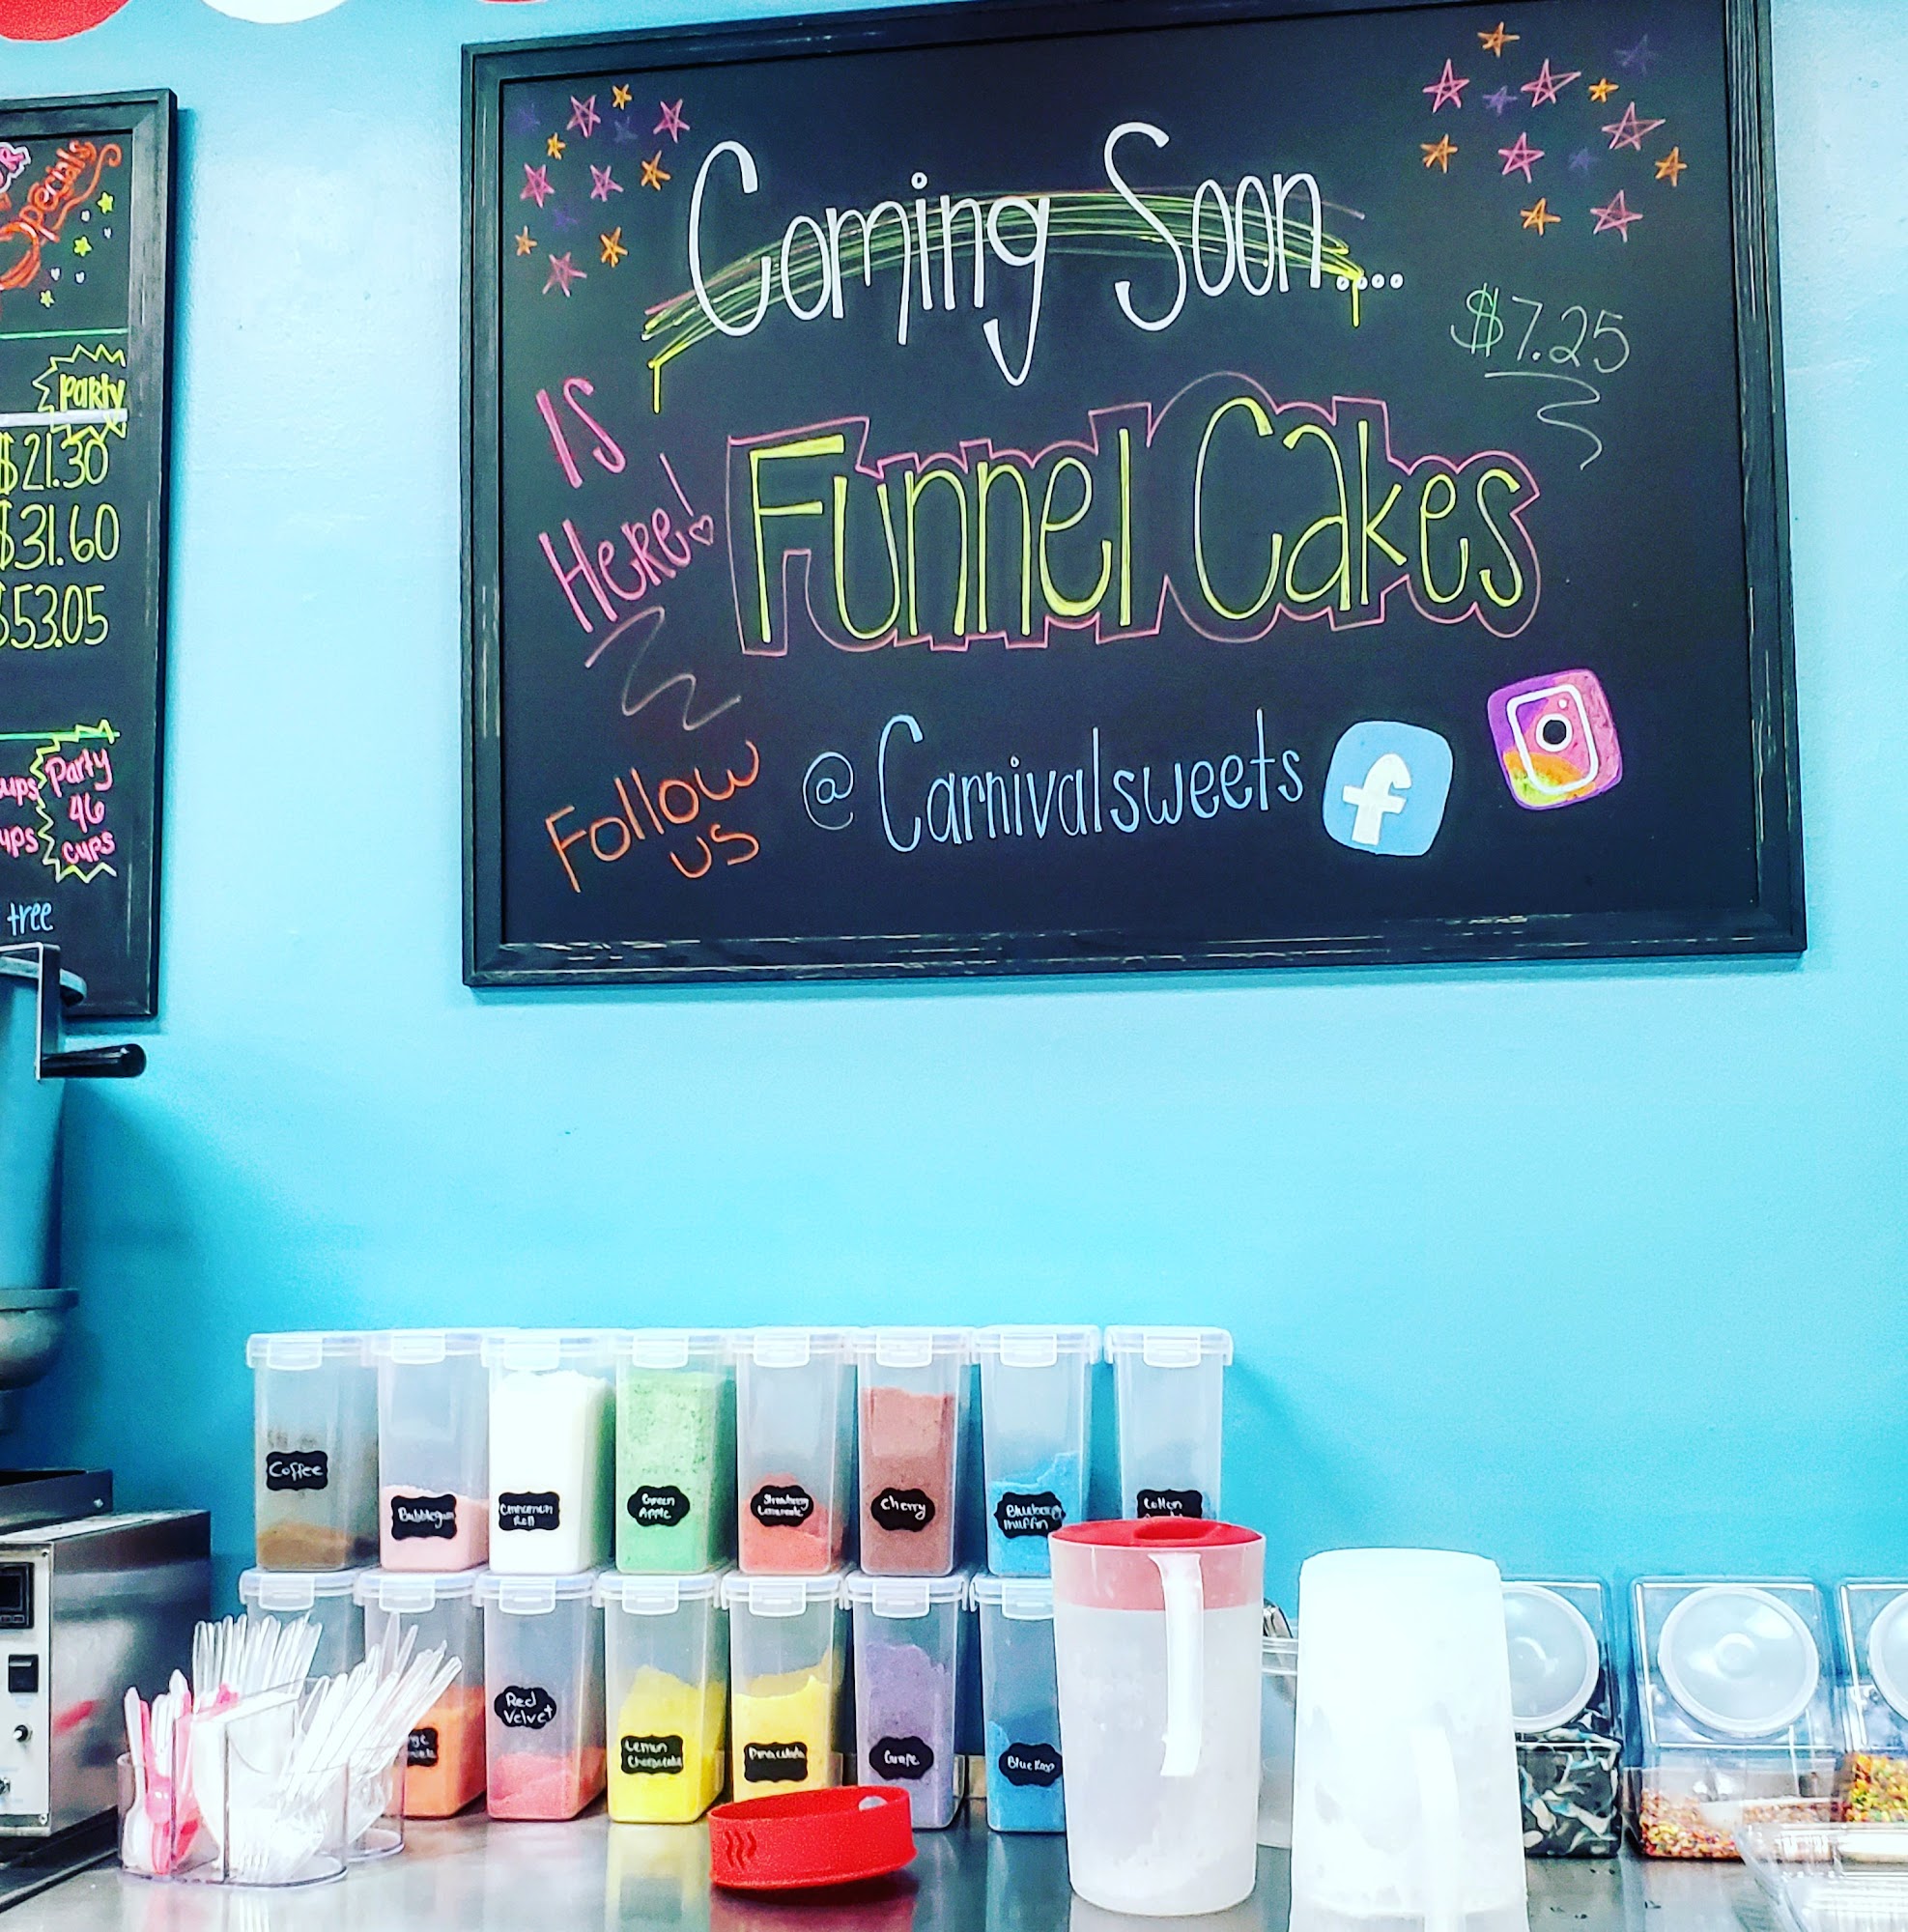 Specials
Party
$21.30
$31.60
$53.05
cups
Party
46
cups
tree
Coming Soon....
$7.25
Is
Here!
Funnel Cakes
Follow
us
@Carnivalsweets
f
Coffee
Bubblegum
Cinnamon
Roll
Green
Apple
Strawberry
Lemonade
Cherry
Blueberry
muffin
Cotton
Red
Velvet
Lemon
Grape